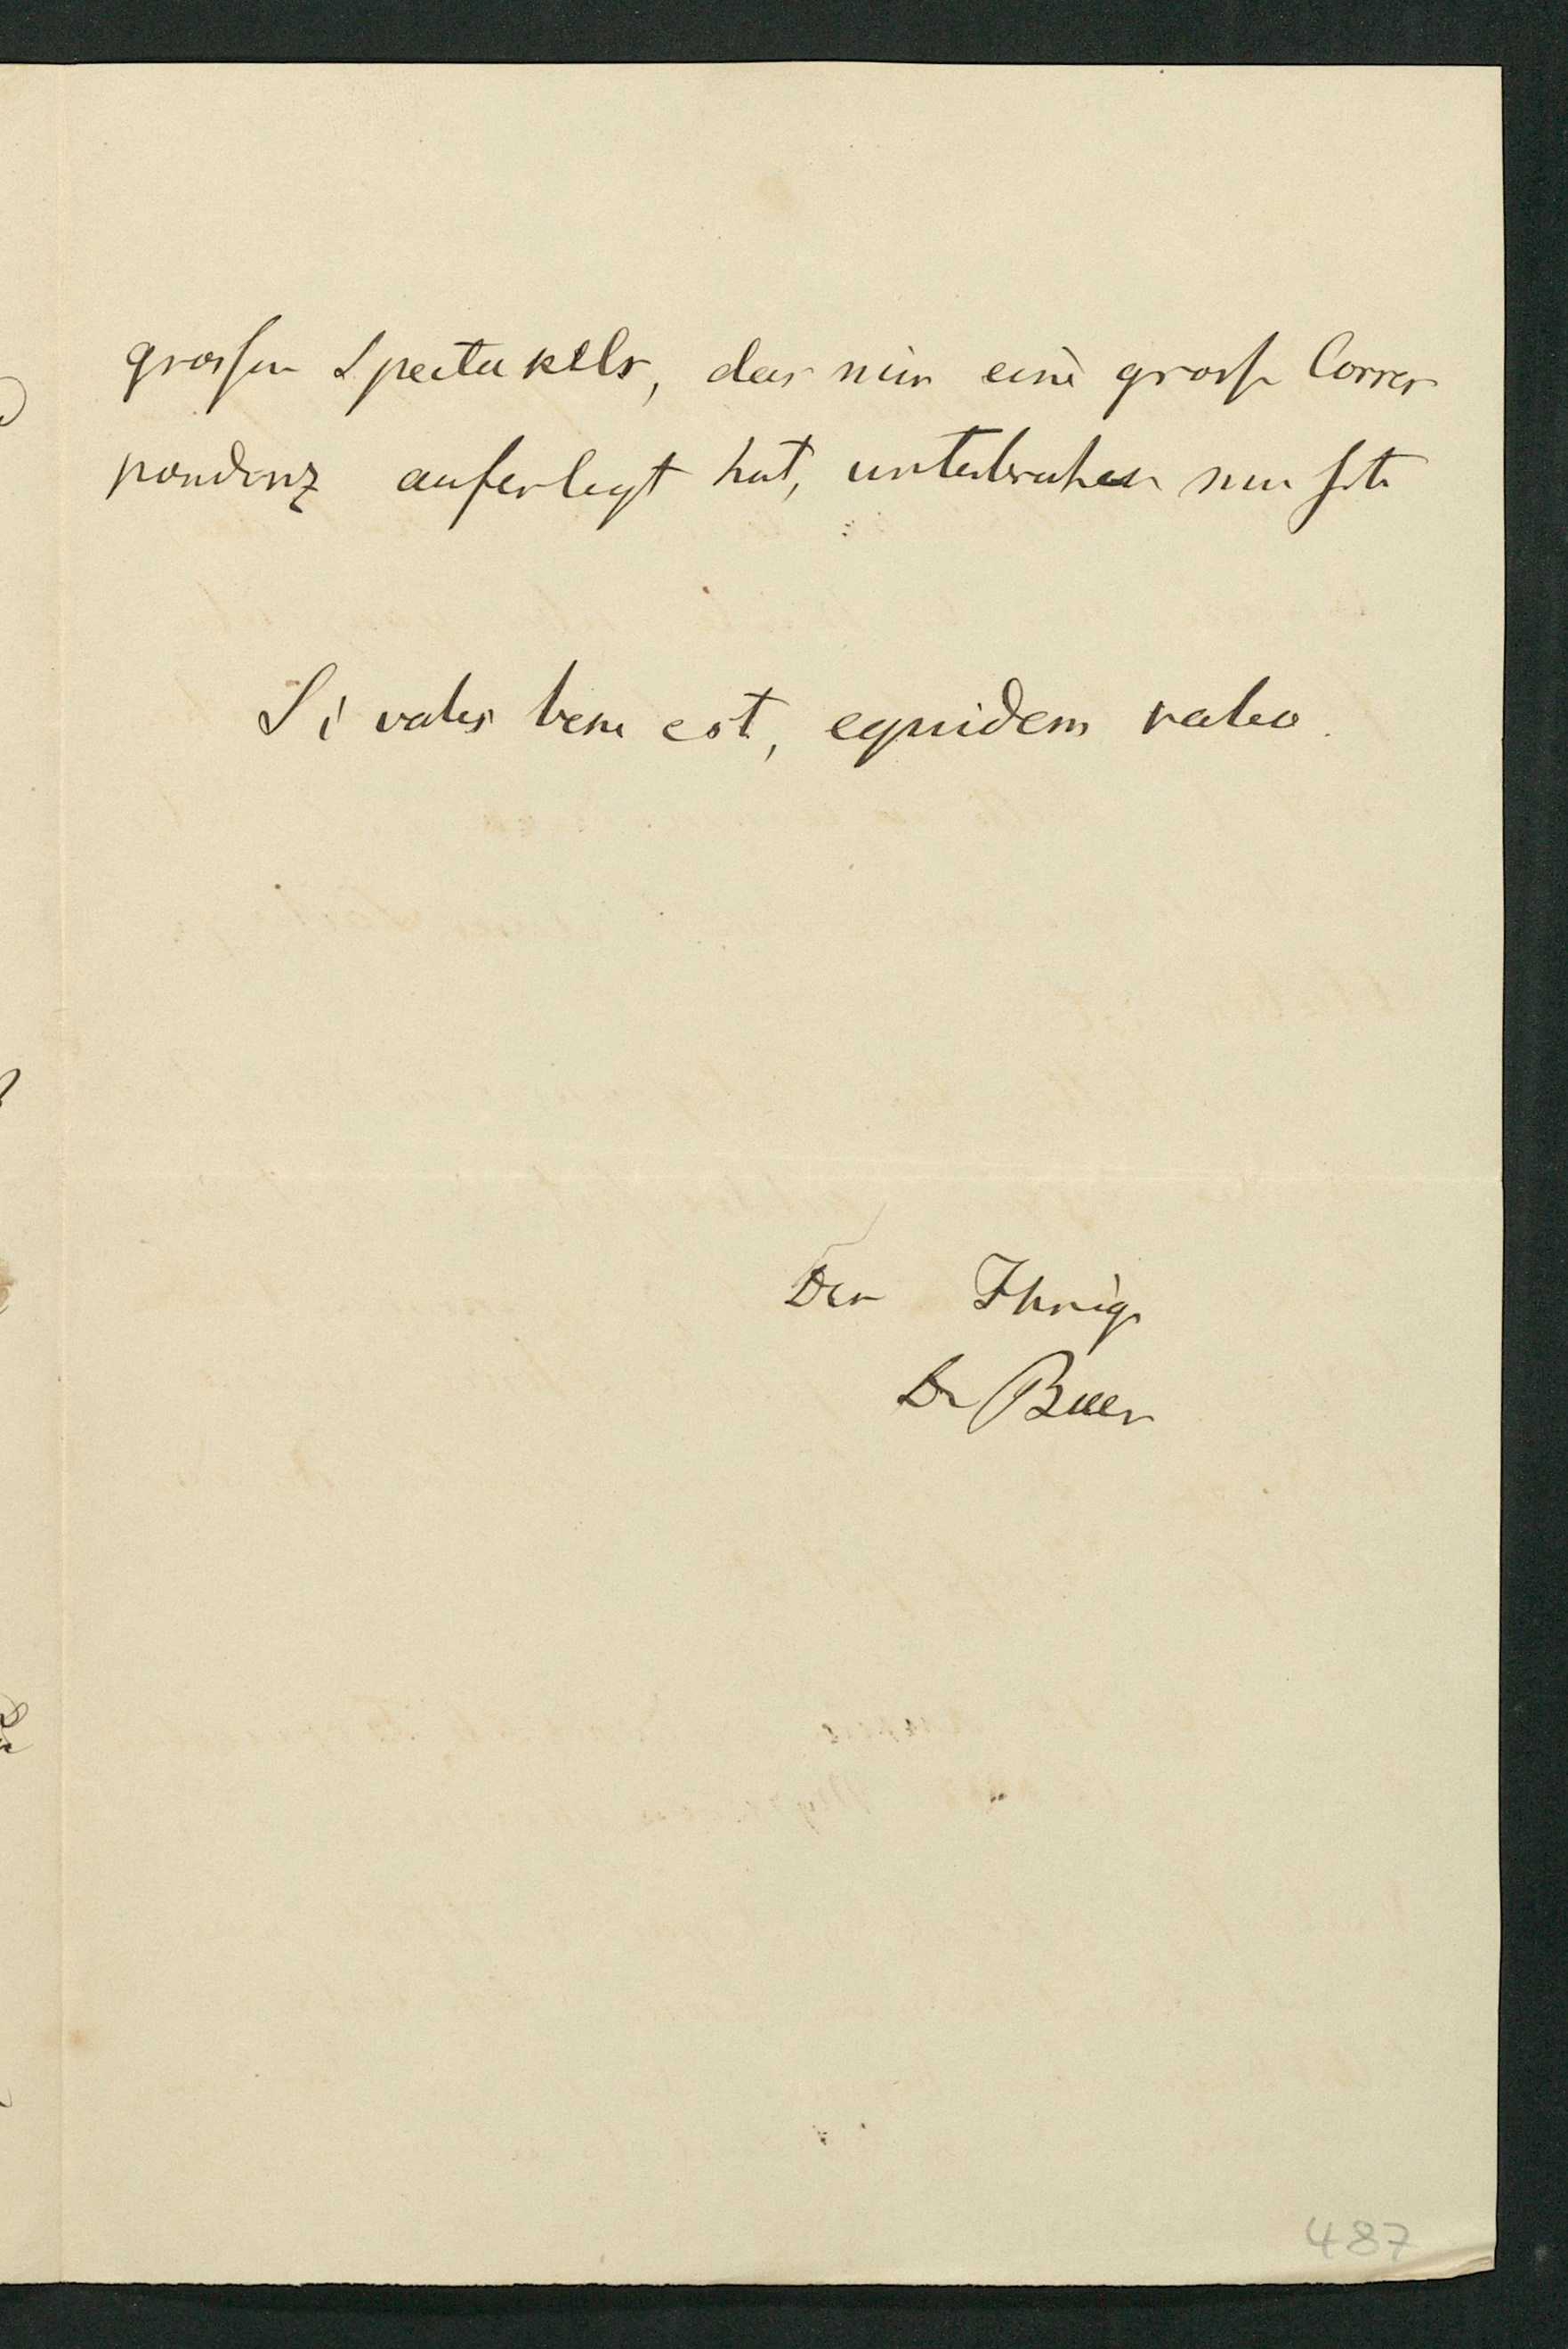 grossen Spectakels, das mir eine grosse Corres
pondenz auferlegt hat, unterbrechen musste
Si vales bene est, equidem valeo.
Der Ihrige
Dr Baer
487